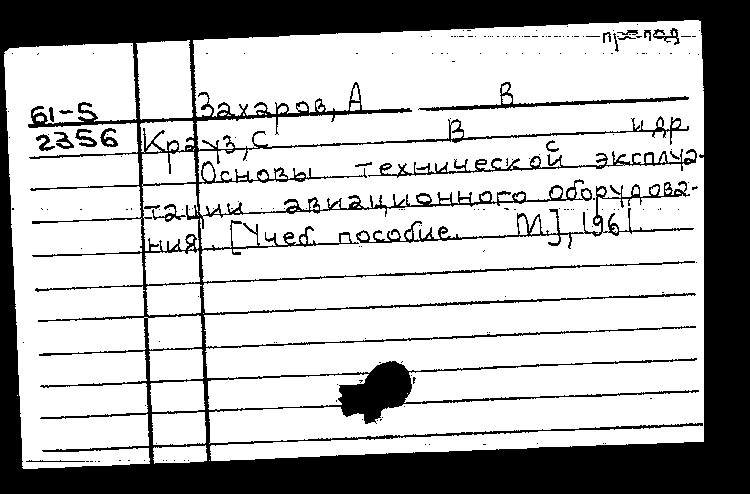 препод
61-5 Захаров, А В
2356 Крауз, С В и др
Основы технической эксплуа-
тации авиационного оборудова-
ния. [Учеб. пособие. М.], 1961.